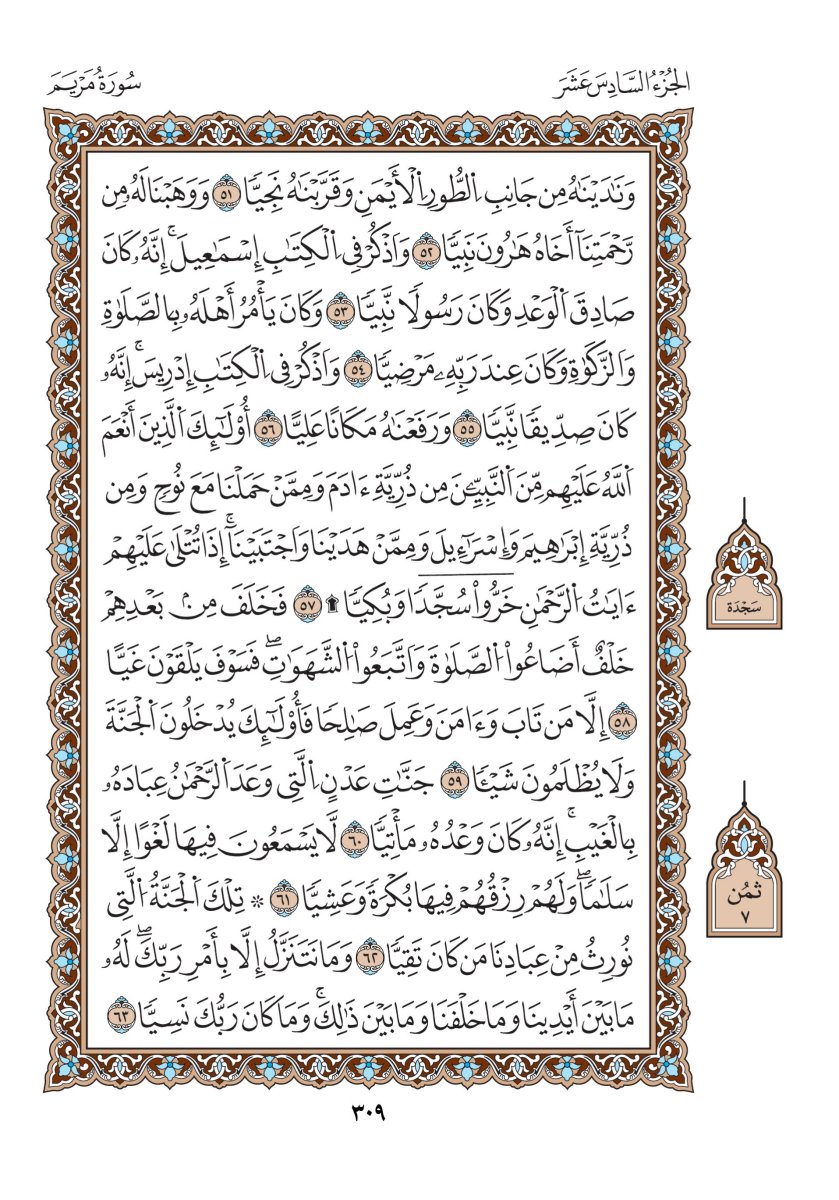 الجُزْءُ السَّادِسَ عَشَرَ
سُورَةُ مَرْيَمَ
وَنَٰدَيْنَٰهُ مِن جَانِبِ اِ۬لطُّورِ اِ۬لْأَيْمَنِ وَقَرَّبْنَٰهُ نَجِيّٗاۖ ٥١ وَوَهَبْنَا لَهُۥ مِن
رَّحْمَتِنَآ أَخَاهُ هَٰرُونَ نَبِيّٗا ٥٢ وَاَذْكُرْ فِي اِ۬لْكِتَٰبِ إِسْمَٰعِيلَۚ إِنَّهُۥ كَانَ
صَادِقَ اَ۬لْوَعْدِ وَكَانَ رَسُولٗا نَّبِيّٗا ٥٣ وَكَانَ يَأْمُرُ أَهْلَهُۥ بِالصَّلَوٰةِ
وَالزَّكَوٰةِ وَكَانَ عِندَ رَبِّهِۦ مَرْضِيّٗا ٥٤ وَاَذْكُرْ فِي اِ۬لْكِتَٰبِ إِدْرِيسَۚ إِنَّهُۥ
كَانَ صِدِّيقٗا نَّبِيّٗا ٥٥ وَرَفَعْنَٰهُ مَكَانًا عَلِيًّا ٥٦ أُوْلَٰٓئِكَ اَ۬لَّذِينَ أَنْعَمَ
اَ۬للَّهُ عَلَيْهِم مِّنَ اَ۬لنَّبِيِّـۧنَ مِن ذُرِّيَّةِ ءَادَمَ وَمِمَّنْ حَمَلْنَا مَعَ نُوحٖ وَمِن
ذُرِّيَّةِ إِبْرَٰهِيمَ وَإِسْرَٰٓءِيلَ وَمِمَّنْ هَدَيْنَا وَاَجْتَبَيْنَآۚ إِذَا تُتْلَىٰ عَلَيْهِمْ
ءَايَٰتُ اُ۬لرَّحْمَٰنِ خَرُّواْ سُجَّدٗا وَبُكِيّٗا ۩ ٥٧ فَخَلَفَ مِنۢ بَعْدِهِمْ
خَلْفٌ أَضَاعُواْ اُ۬لصَّلَوٰةَ وَاَتَّبَعُواْ اُ۬لشَّهَوَٰتِۖ فَسَوْفَ يَلْقَوْنَ غَيًّا
٥٨ إِلَّا مَن تَابَ وَءَامَنَ وَعَمِلَ صَٰلِحٗا فَأُوْلَٰٓئِكَ يُدْخَلُونَ اَ۬لْجَنَّةَ
وَلَا يُظْلَمُونَ شَيْـٔٗا ٥٩ جَنَّٰتِ عَدْنٍ اِ۬لَّتِي وَعَدَ اَ۬لرَّحْمَٰنُ عِبَادَهُۥ
بِالْغَيْبِۚ إِنَّهُۥ كَانَ وَعْدُهُۥ مَأْتِيّٗا ٦٠ لَّا يَسْمَعُونَ فِيهَا لَغْوًا إِلَّا
سَلَٰمٗاۖ وَلَهُمْ رِزْقُهُمْ فِيهَا بُكْرَةٗ وَعَشِيّٗا ٦١ ۞ تِلْكَ اَ۬لْجَنَّةُ اُ۬لَّتِي
نُورِثُ مِنْ عِبَادِنَا مَن كَانَ تَقِيّٗا ٦٢ وَمَا نَتَنَزَّلُ إِلَّا بِأَمْرِ رَبِّكَۖ لَهُۥ
مَا بَيْنَ أَيْدِينَا وَمَا خَلْفَنَا وَمَا بَيْنَ ذَٰلِكَۚ وَمَا كَانَ رَبُّكَ نَسِيّٗا ٦٣
سَجْدَة
ثُمُن
٧
٣٠٩